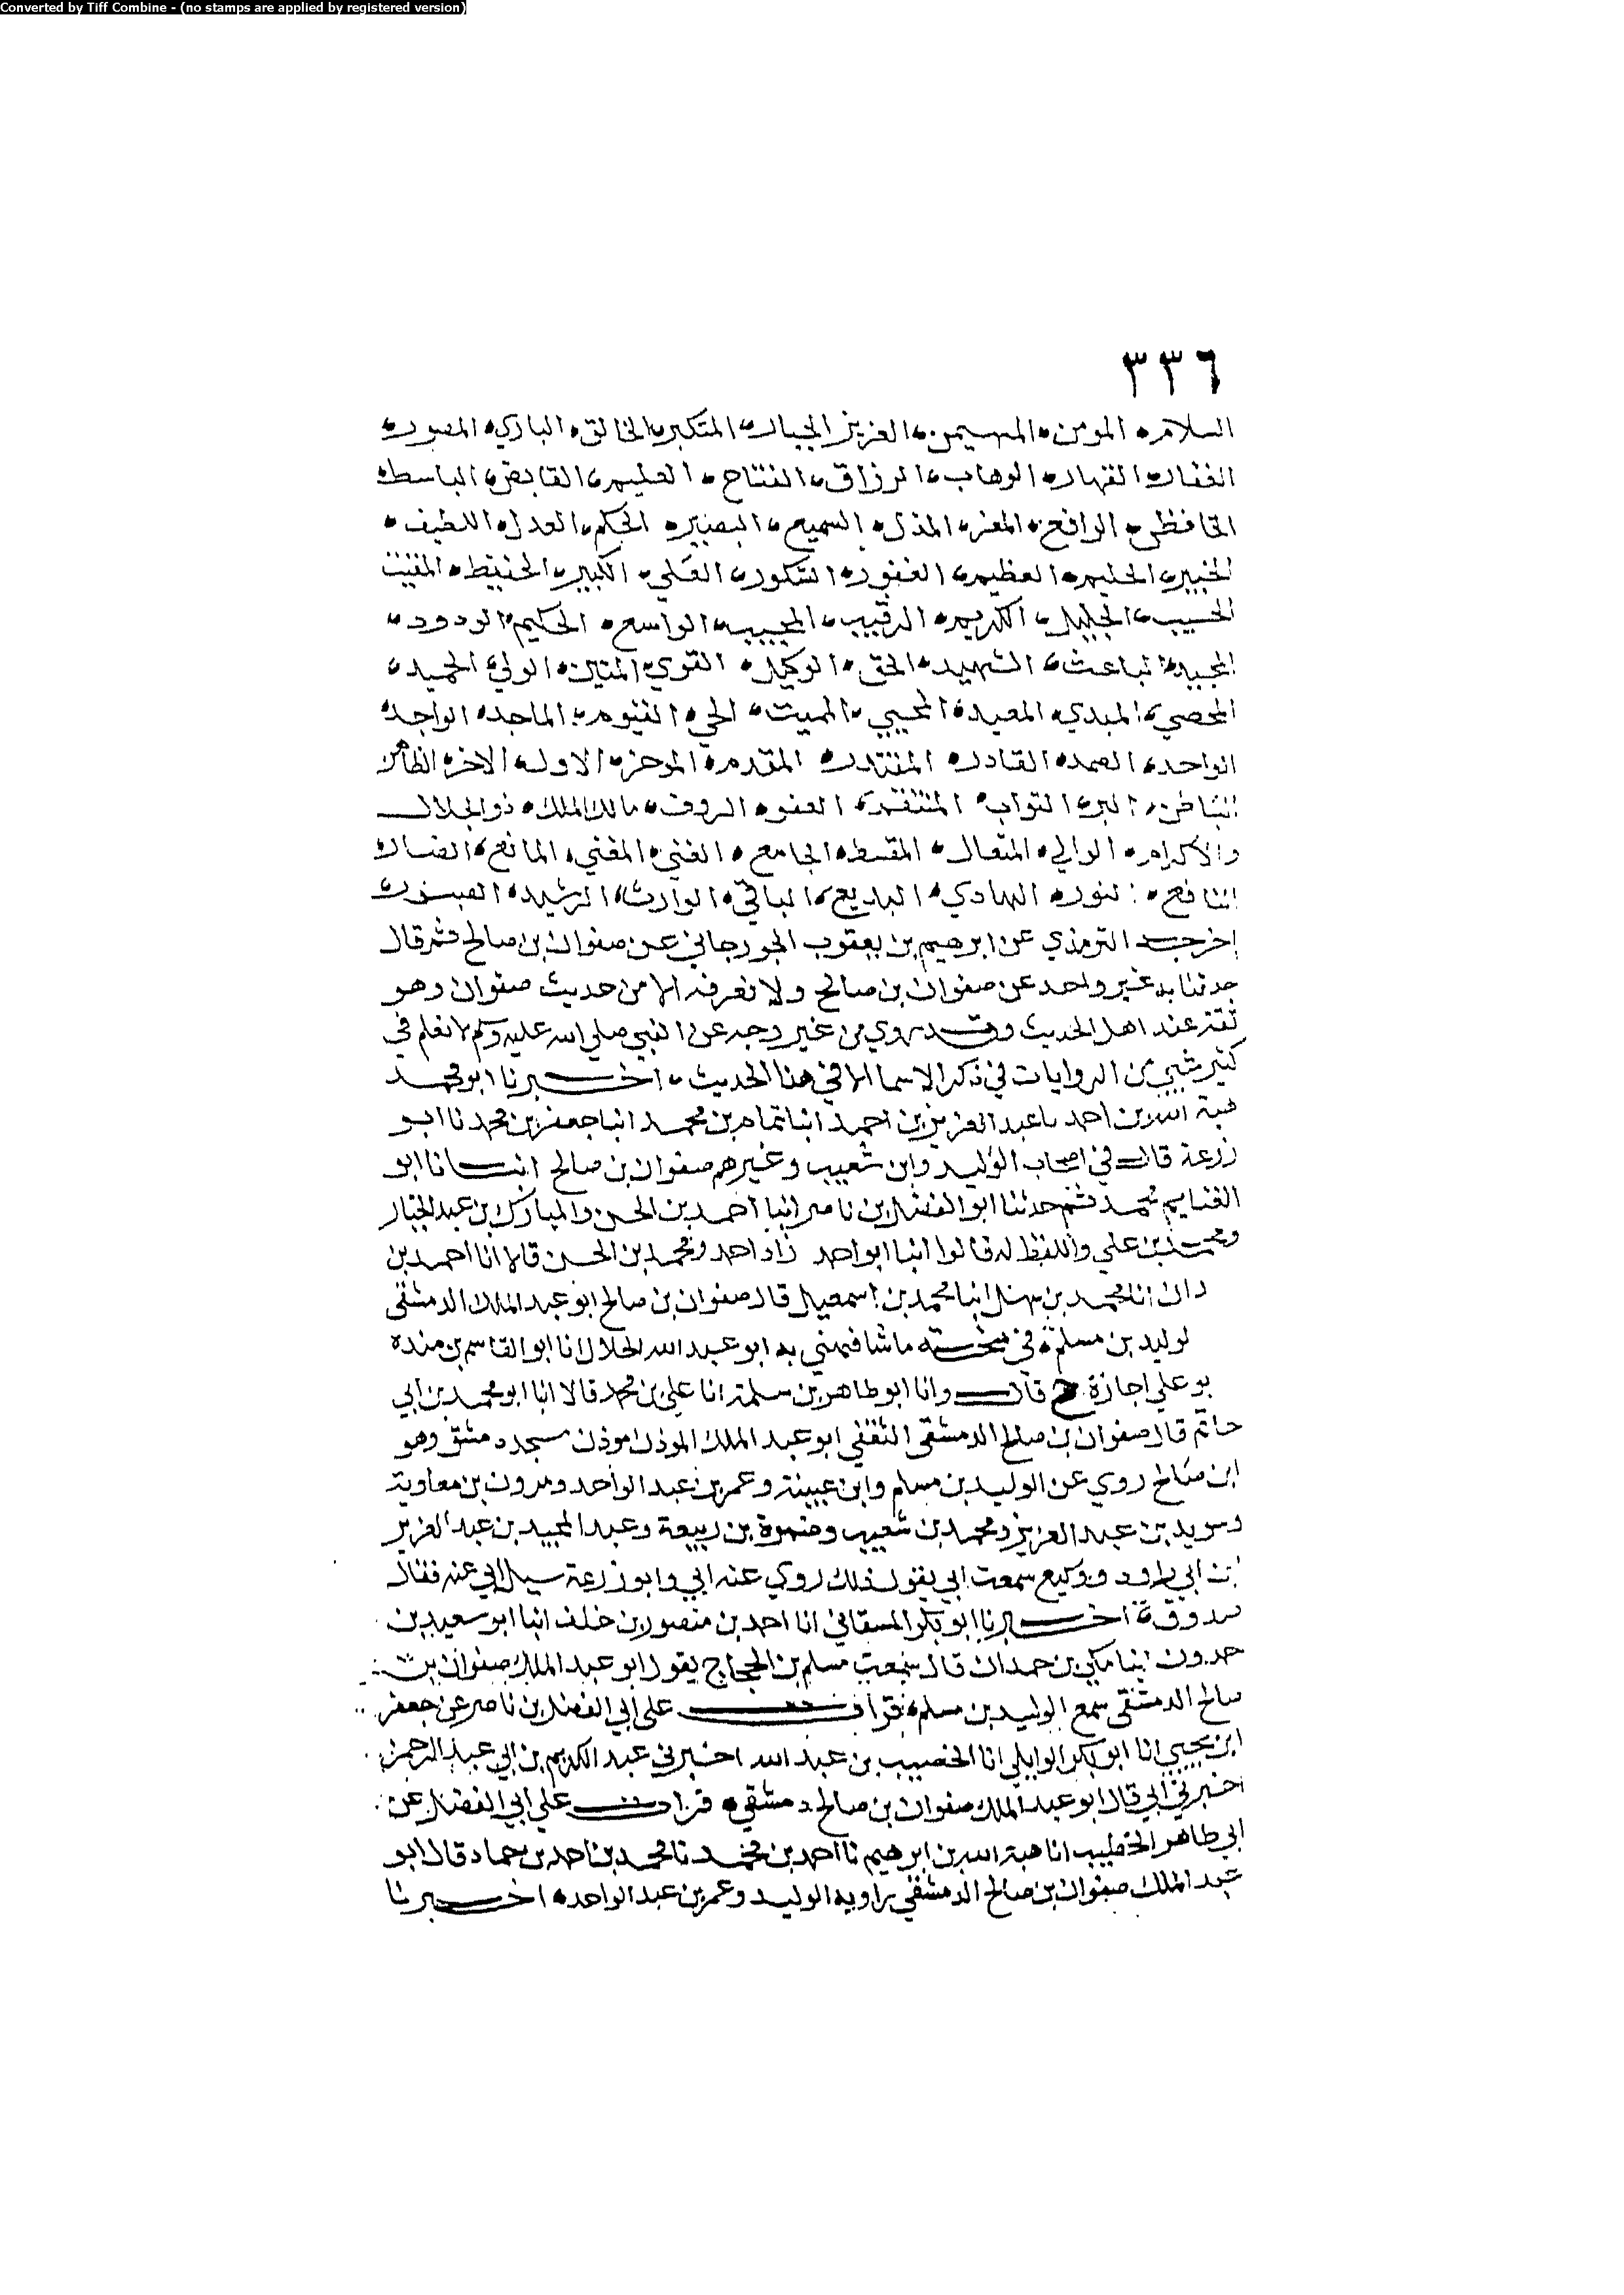 Converted by Tiff Combine - (no stamps are applied by registered version)
٣٣٦
السلام المومن المهيمن العزيز الجبار المتكبر الخالق الباري المصور
الغفار القهار الوهاب الرزاق الفتاح العليم القابض الباسط
الخافظ الرافع المعز المذل السميع البصير الحكم العدل اللطيف
الخبير الحليم العظيم الغفور الشكور العلي الكبير الحفيظ المقيت
الحسيب الجليل الكريم الرقيب المجيب الواسع الحكيم الودود
المجيد الباعث الشهيد الحق الوكيل القوي المتين الولي الحميد
المحصي المبدي المعيد المحيي المميت الحي القيوم الماجد الواجد
الواحد الصمد القادر المقتدر المقدم الموخر الاول الاخر الظاهر
الباطن البر التواب المنتقم العفو الروف مالك الملك ذو الجلال
والاكرام الوالي المتعال المقسط الجامع الغني المغني المانع الضار
النافع النور الهادي البديع الباقي الوارث الرشيد الصبور
اخرجه الترمذي عن ابرهيم بن يعقوب الجورجاني عن صفوان بن صالح ثم قال
حدثنا به غير واحد عن صفوان بن صالح ولا نعرفه الا من حديث صفوان وهو
ثقة عند اهل الحديث وقد روي من غير وجه عن النبي صلي الله عليه وسلم لا نعلم في
كثير شيي من الروايات في ذكر الاسما الا في هذا الحديث اخبرنا ابو محمد
هبة الله بن احمد نا عبد العزيز بن احمد انبا تمام بن محمد انبا جعفر بن محمد نا ابو
زرعة قال في اصحاب الوليد وابن شعيب وغيرهم صفوان بن صالح انبانا ابو
الغنايم محمد ثم حدثنا ابو الفضل بن ناصر انبا احمد بن الحسن والمبارك بن عبد الجبار
ومحمد بن علي واللفظ له قالوا انبا ابو احمد زاد احمد ومحمد بن الحسن قالا انا احمد بن
دان انا محمد بن سهل انبا محمد بن اسمعيل قال صفوان بن صالح ابو عبد الملك الدمشقي
لوليد بن مسلم في نسخة ما شافهني به ابو عبد الله الخلال انا ابو القاسم بن منده
بو علي اجازة ح قال وانا ابو طاهر بن سلمة انا علي بن محمد قالا انا ابو محمد بن ابي
حاتم قال صفوان بن صالح الدمشقي الثقفي ابو عبد الملك الموذن موذن مسجد دمشق وهو
ابن صالح روي عن الوليد بن مسلم وابن عيينة وعمر بن عبد الواحد ومرون بن معاوية
وسويد بن عبد العزيز ومحمد بن شعيب وضمرة بن ربيعة وعبد المجيد بن عبد العزيز
بن ابي داود ووكيع سمعت ابي يقول ذلك روي عنه ابي وابو زرعة سيل ابي عنه فقال
صدوق اخبرنا ابو بكر السقاني انا احمد بن منصور بن خلف انبا ابو سعيد بن
حمدون انبا مكي بن حمدان قال سمعت مسلم بن الحجاج يقول ابو عبد الملك صفوان بن
صالح الدمشقي سمع الوليد بن مسلم قرات علي ابي الفضل بن ناصر عن جعفر
ابن يحيي انا ابو بكر الوايلي انا الخصيب بن عبد الله اخبرني عبد الكريم بن ابي عبد الرحمن
اخبرني ابي قال ابو عبد الملك صفوان بن صالح دمشقي قرات علي ابي الفضل عن
ابي طاهر الخطيب انا هبة الله بن ابرهيم نا احمد بن محمد نا محمد بن احمد بن حماد قال ابو
عبد الملك صفوان بن صالح الدمشقي راوية الوليد وعمر بن عبد الواحد اخبرنا